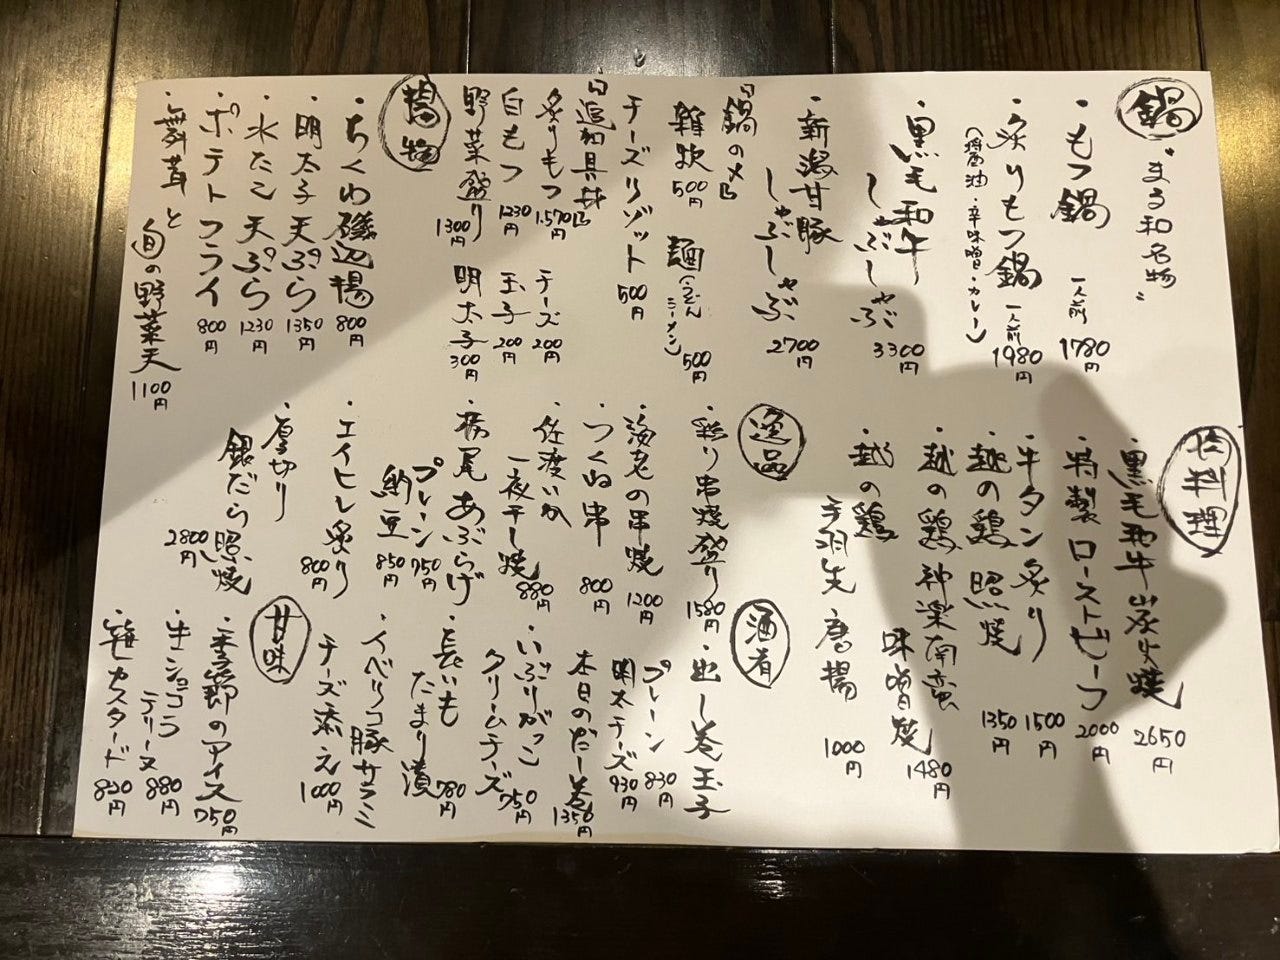 鍋
"まる和名物"
・もつ鍋 一人前 1780円
・炙りもつ鍋 一人前 1980円
(醤油・辛味噌・カレー)
・黒毛和牛
しゃぶしゃぶ 3300円
・新潟甘豚
しゃぶしゃぶ 2700円
「鍋の〆」
雑炊 500円 麺(うどん ラーメン) 500円
チーズリゾット 500円
「追加具材」
炙りもつ 1570円 チーズ 200円
白もつ 1230円 玉子 200円
野菜盛り 1300円 明太子 300円
揚物
・ちくわ磯辺揚 800円
・明太子天ぷら 1350円
・水たこ天ぷら 1230円
・ポテトフライ 800円
・舞茸と
旬の野菜天 1100円
肉料理
・黒毛和牛炭火焼 2650円
・特製ローストビーフ 2000円
・牛タン炙り 1500円
・越の鶏照焼 1350円
・越の鶏神楽南蛮
味噌焼 1480円
・越の鶏
手羽先唐揚 1000円
逸品
・彩り串焼盛り 1580円
・海老の串焼 1200円
・つくね串 800円
・佐渡いか
一夜干し焼 880円
・栃尾あぶらげ
プレーン 750円
納豆 850円
・エイヒレ炙り 800円
・厚切り
銀だら照焼 2800円
酒肴
・出し巻玉子
プレーン 830円
明太チーズ 930円
本日のだし巻 1350円
・いぶりがっこ
クリームチーズ 750円
・長いも
たまり漬 780円
・イベリコ豚サラミ
チーズ添え 1000円
甘味
・季節のアイス 750円
・生ショコラ
テリーヌ 880円
・笹カスタード 850円